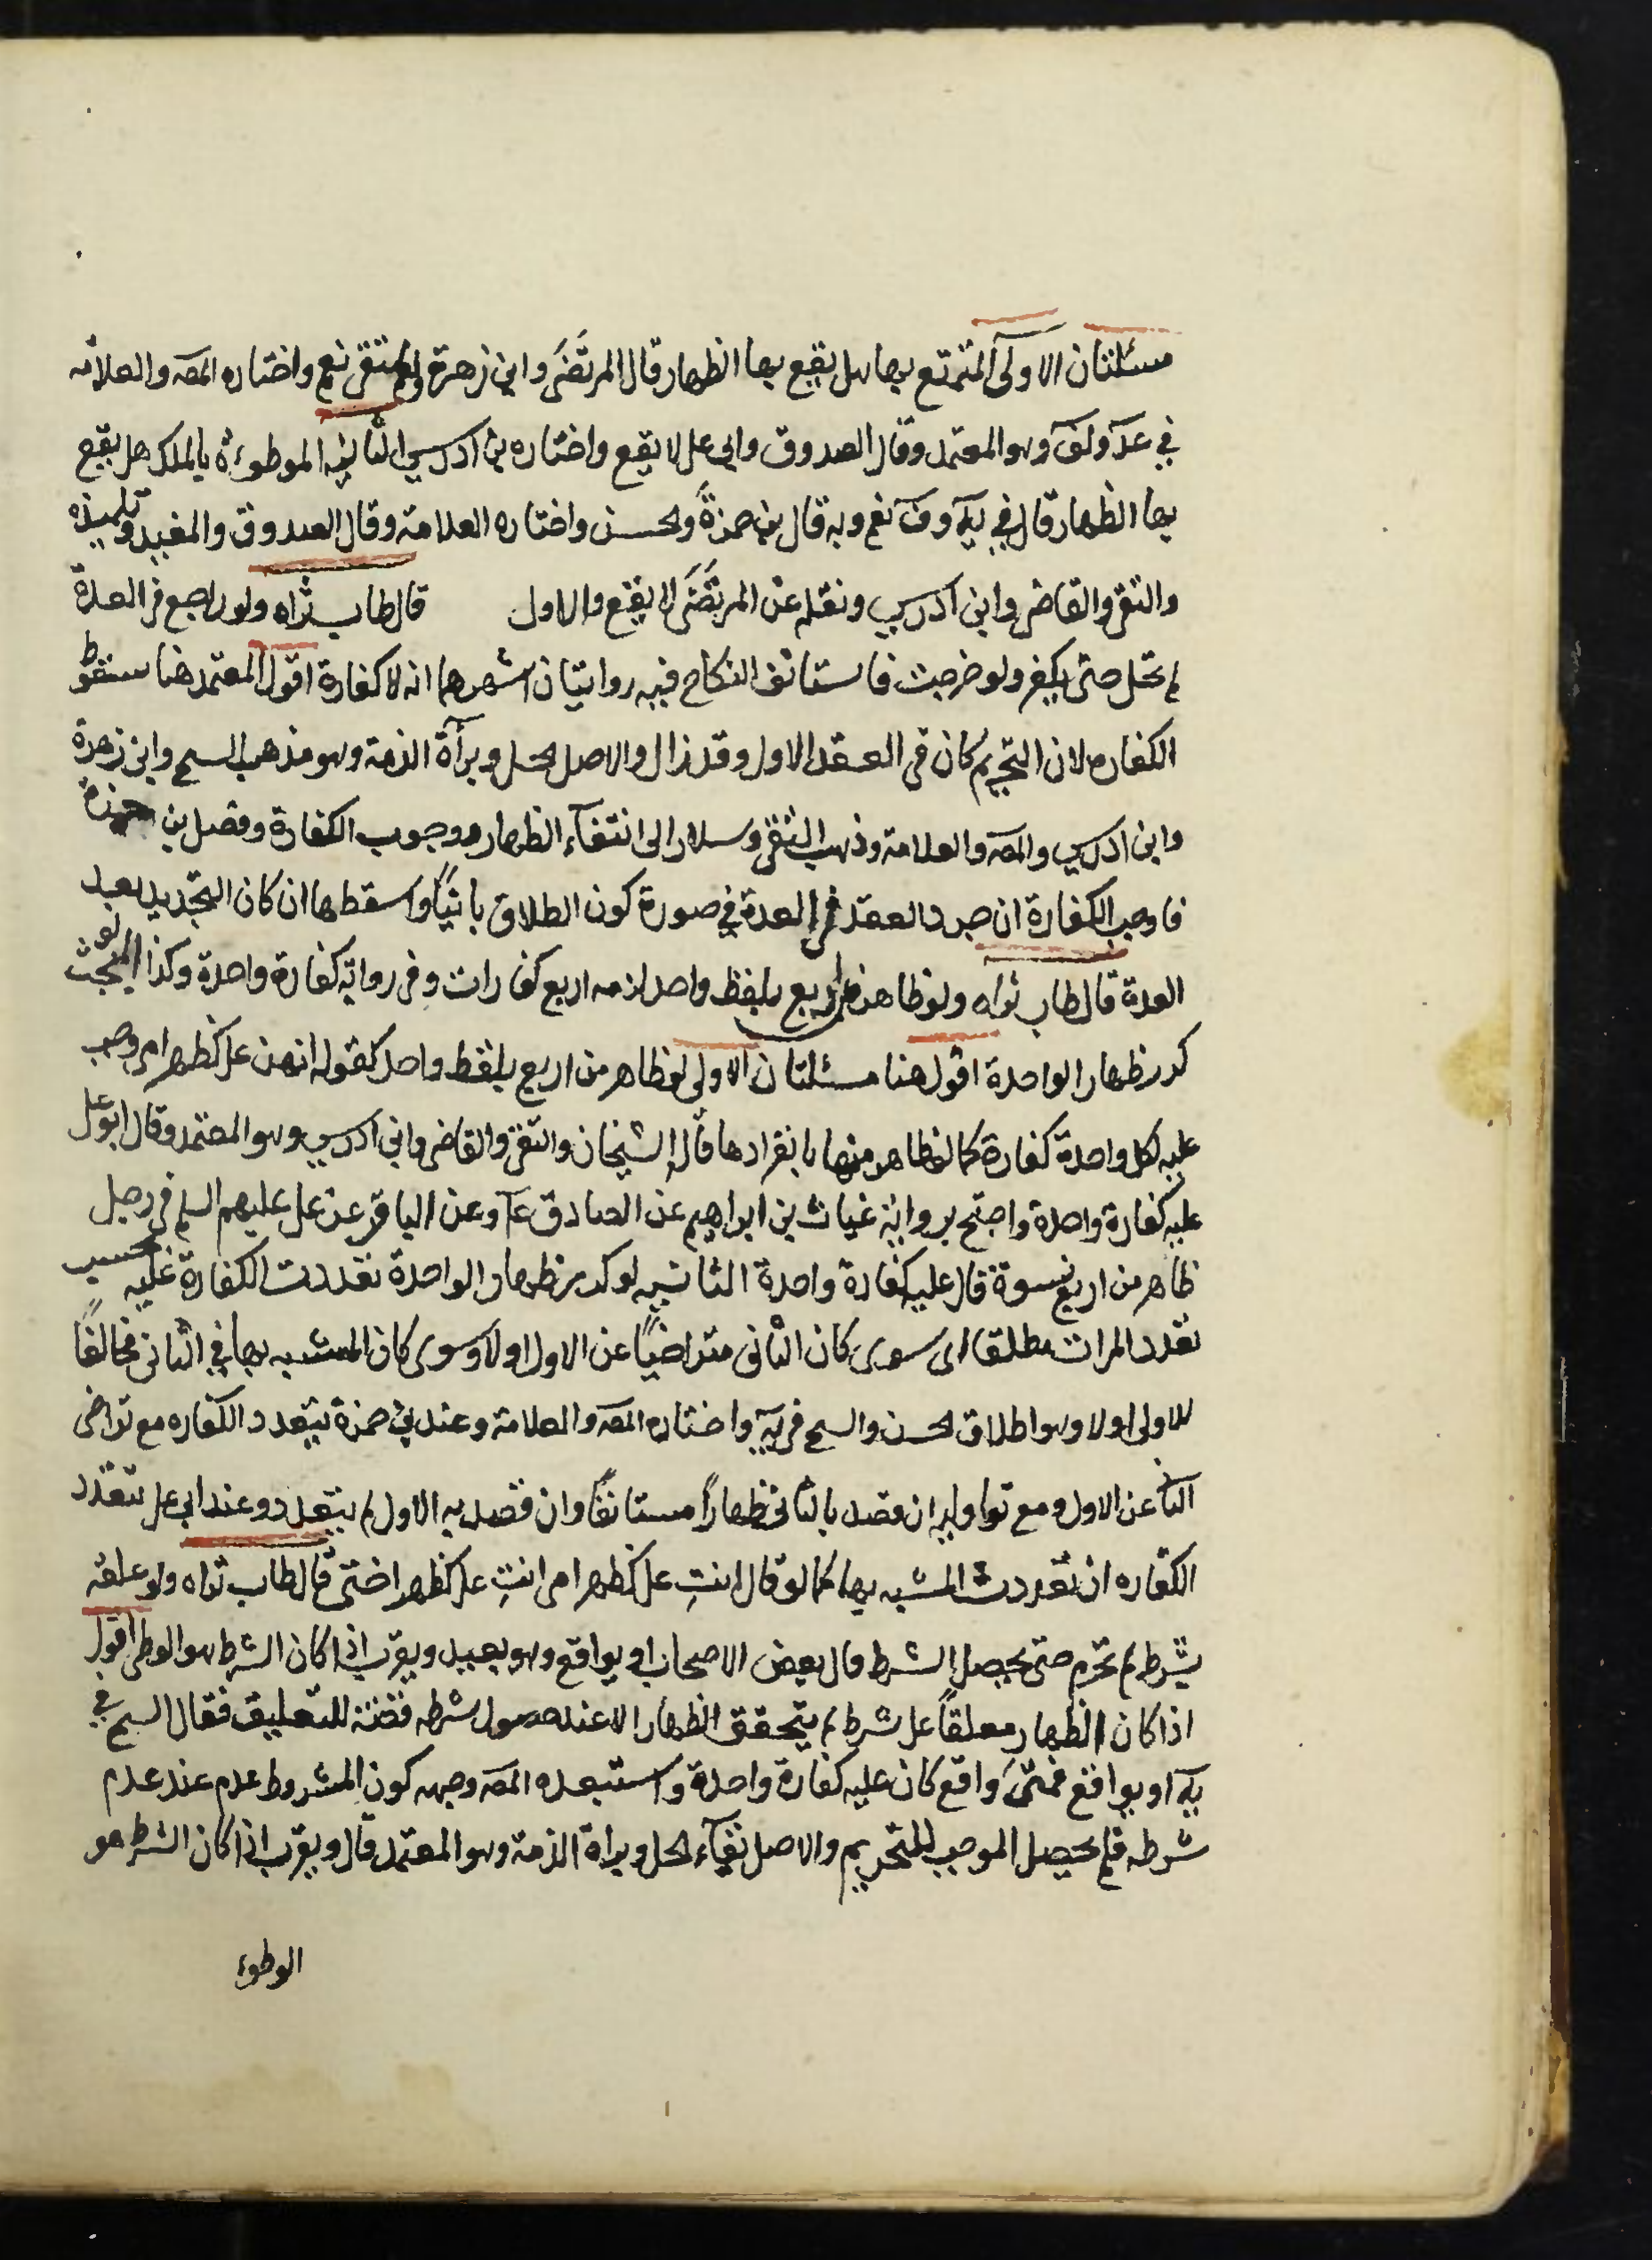 مسئلتان الاولى المتمتع بها هل يقع بها الظهار قال المرتضى وابن زهرة والتقى نعم واختاره المصه والعلامه
في عد ولف وهو المعتمد وقال الصدوق وابى على لا يقع واختاره بن ادريس الثانيه الموطوءة بالملك هل يقع
بها الظهار قال في يه وف نعم وبه قال بن حمزة ولحسن واختاره العلامة وقال الصدوق والمفيد وتلميذه
والتقى والقاضى وابن ادريس ونقله عن المرتضى لا يقع والاول قال طاب ثراه ولو راجع في العدة
لم تحل حتى يكفر ولو خرجت فاستانف النكاح فيه روايتان اشهرهما انه لا كفارة اقول المعتمد هنا سقوط
الكفاره لان التحريم كان في العقد الاول وقد زال والاصل لحل وبرآة الذمة وهو مذهب السح وابن زهرة
وابن ادريس والمصه والعلامة وذهب التقى وسلار الى انتفآء الظهار ووجوب الكفارة وفصل بن حمزة
فاوجب الكفارة ان جدد العقد في العدة في صورة كون الطلاق بائنًا واسقطها ان كان التجديد بعد
العدة قال طاب ثراه ولو ظاهر من اربع بلفظ واحد لزمه اربع كفارات وفي رواية كفارة واحدة وكذا البحث لو
كرر ظهار الواحدة اقول هنا مسئلتان الاولى لو ظاهر من اربع بلفظ واحد كقوله انهن على كظهر امى وجب
عليه لكل واحدة كفارة كما لو ظاهر منها بانفرادها قاله الشيخان والتقى والقاضى وابن ادريس وهو المعتمد وقال ابو على
عليه كفارة واحدة واحتج برواية غياث بن ابراهيم عن الصادق عآ وعن الباقر عن على عليهم السلم في رجل
ظاهر من اربع نسوة قال عليه كفارة واحدة الثانيه لو كرر ظهار الواحدة تعددت الكفارة عليه بحسب
تعدد المرات مطلقا اى سوى كان الثانى متراخيًا عن الاول اولا وسوى كان المشبه بها في الثانى مخالفًا
للاولى اولا وهو اطلاق لحسن والسح في يه واختاره المصه والعلامة وعند بن حمزة يتعدد الكفاره مع تراخى
الثآ عن الاول ومع تواليه ان قصد بالثانى ظهارًا مستانفًا وان قصد به الاول لم يتعدد وعند ابى على تتعدد
الكفاره ان تعددت المشبه بها كما لو قال انتِ على كظهر امى انتِ على كظهر اختى قال طاب ثراه ولو علقه
بشرط لم تحرم حتى يحصل الشرط وقال بعض الاصحاب او يواقع وهو بعيد ويقرب اذا كان الشرط هو الوطى اقول
اذا كان الظهار معلقًا على شرط لم يتحقق الظهار الا عند حصول شرطه قضية للتعليق فقال السح في
يه او يواقع فمتى واقع كان عليه كفارة واحدة واستبعده المصه وجهه كون المشروط عدم عند عدم
شرطه فلم يحصل الموجب للتحريم والاصل بقآء لحل وبراة الذمة وهو المعتمد قال ويقرب اذا كان الشرط هو
الوطوء